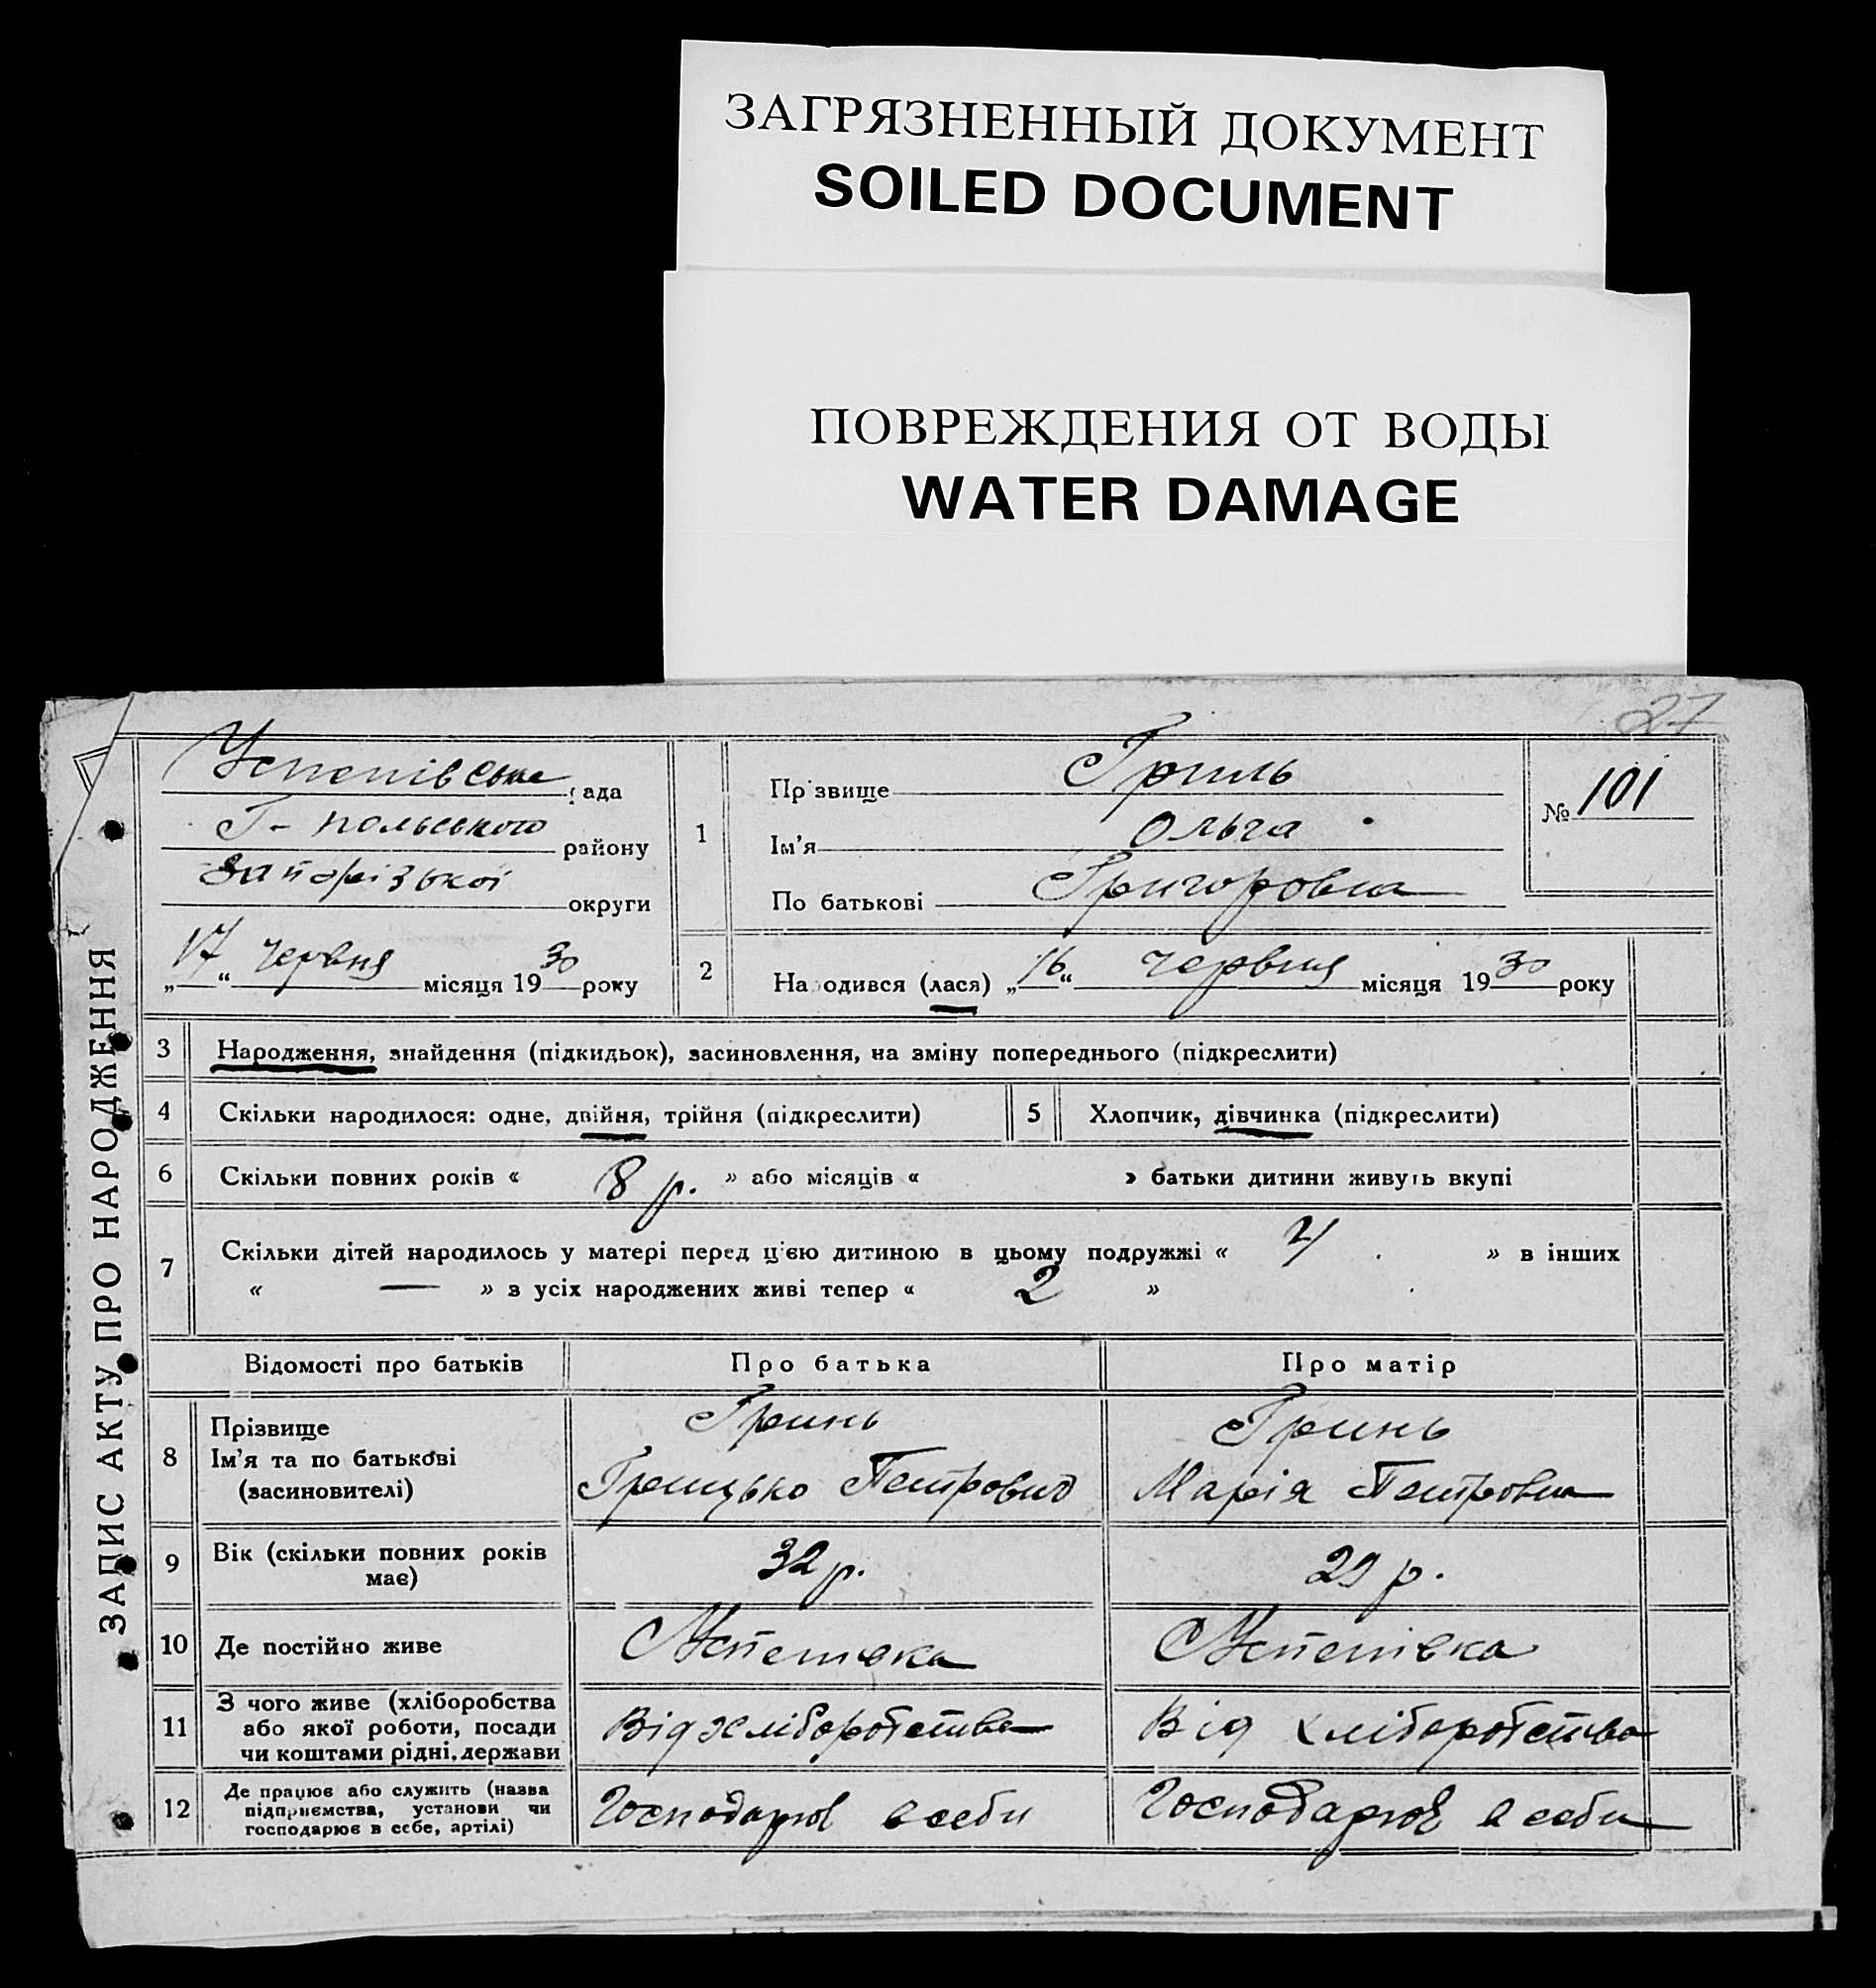 ЗАГРЯЗНЕННЫЙ ДОКУМЕНТ
SOILED DOCUMENT
ПОВРЕЖДЕНИЯ ОТ ВОДЫ
WATER DAMAGE
27
ЗАПИС АКТУ ПРО НАРОДЖЕННЯ
Успенівська рада
Г-польського району
Запорізької округи
„17“ червня місяця 1930 року
1
Прізвище Гринь
Ім'я Ольга
По батькові Григоровна
№ 101
2
Народився (лася) „16“ червня місяця 1930 року
3 Народження, знайдення (підкидьок), засиновлення, на зміну попереднього (підкреслити)
4 Скільки народилося: одне, двійня, трійня (підкреслити)
5 Хлопчик, дівчинка (підкреслити)
6 Скільки повних років « 8 р. » або місяців « » батьки дитини живуть вкупі
7 Скільки дітей народилось у матері перед цією дитиною в цьому подружжі « » в інших
« — » з усіх народжених живі тепер « 2 »
Відомості про батьків Про батька Про матір
8
Прізвище
Ім'я та по батькові
(засиновителі)
Гринь
Грицько Петрович
Гринь
Марія Петровна
9
Вік (скільки повних років
має)
32 р.
29 р.
10 Де постійно живе
Успенівка
Успенівка
11
З чого живе (хліборобства
або якої роботи, посади
чи коштами рідні, держави
Від хліборобства
Від хліборобства
12
Де працює або служить (назва
підприємства, установи чи
господарює в себе, артілі)
Господарює в себи
Господарює в себи